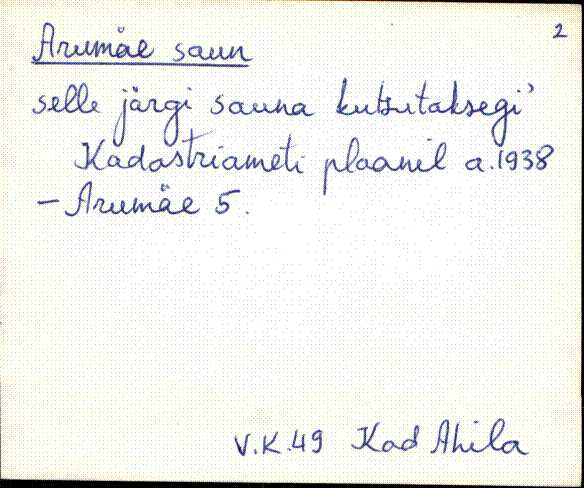 2
Arumäe saun
selle järgi sauna kutsutaksegi’
Kadastriameti plaanil a. 1938
– Arumäe 5.
V.K.49 Kad Ahila